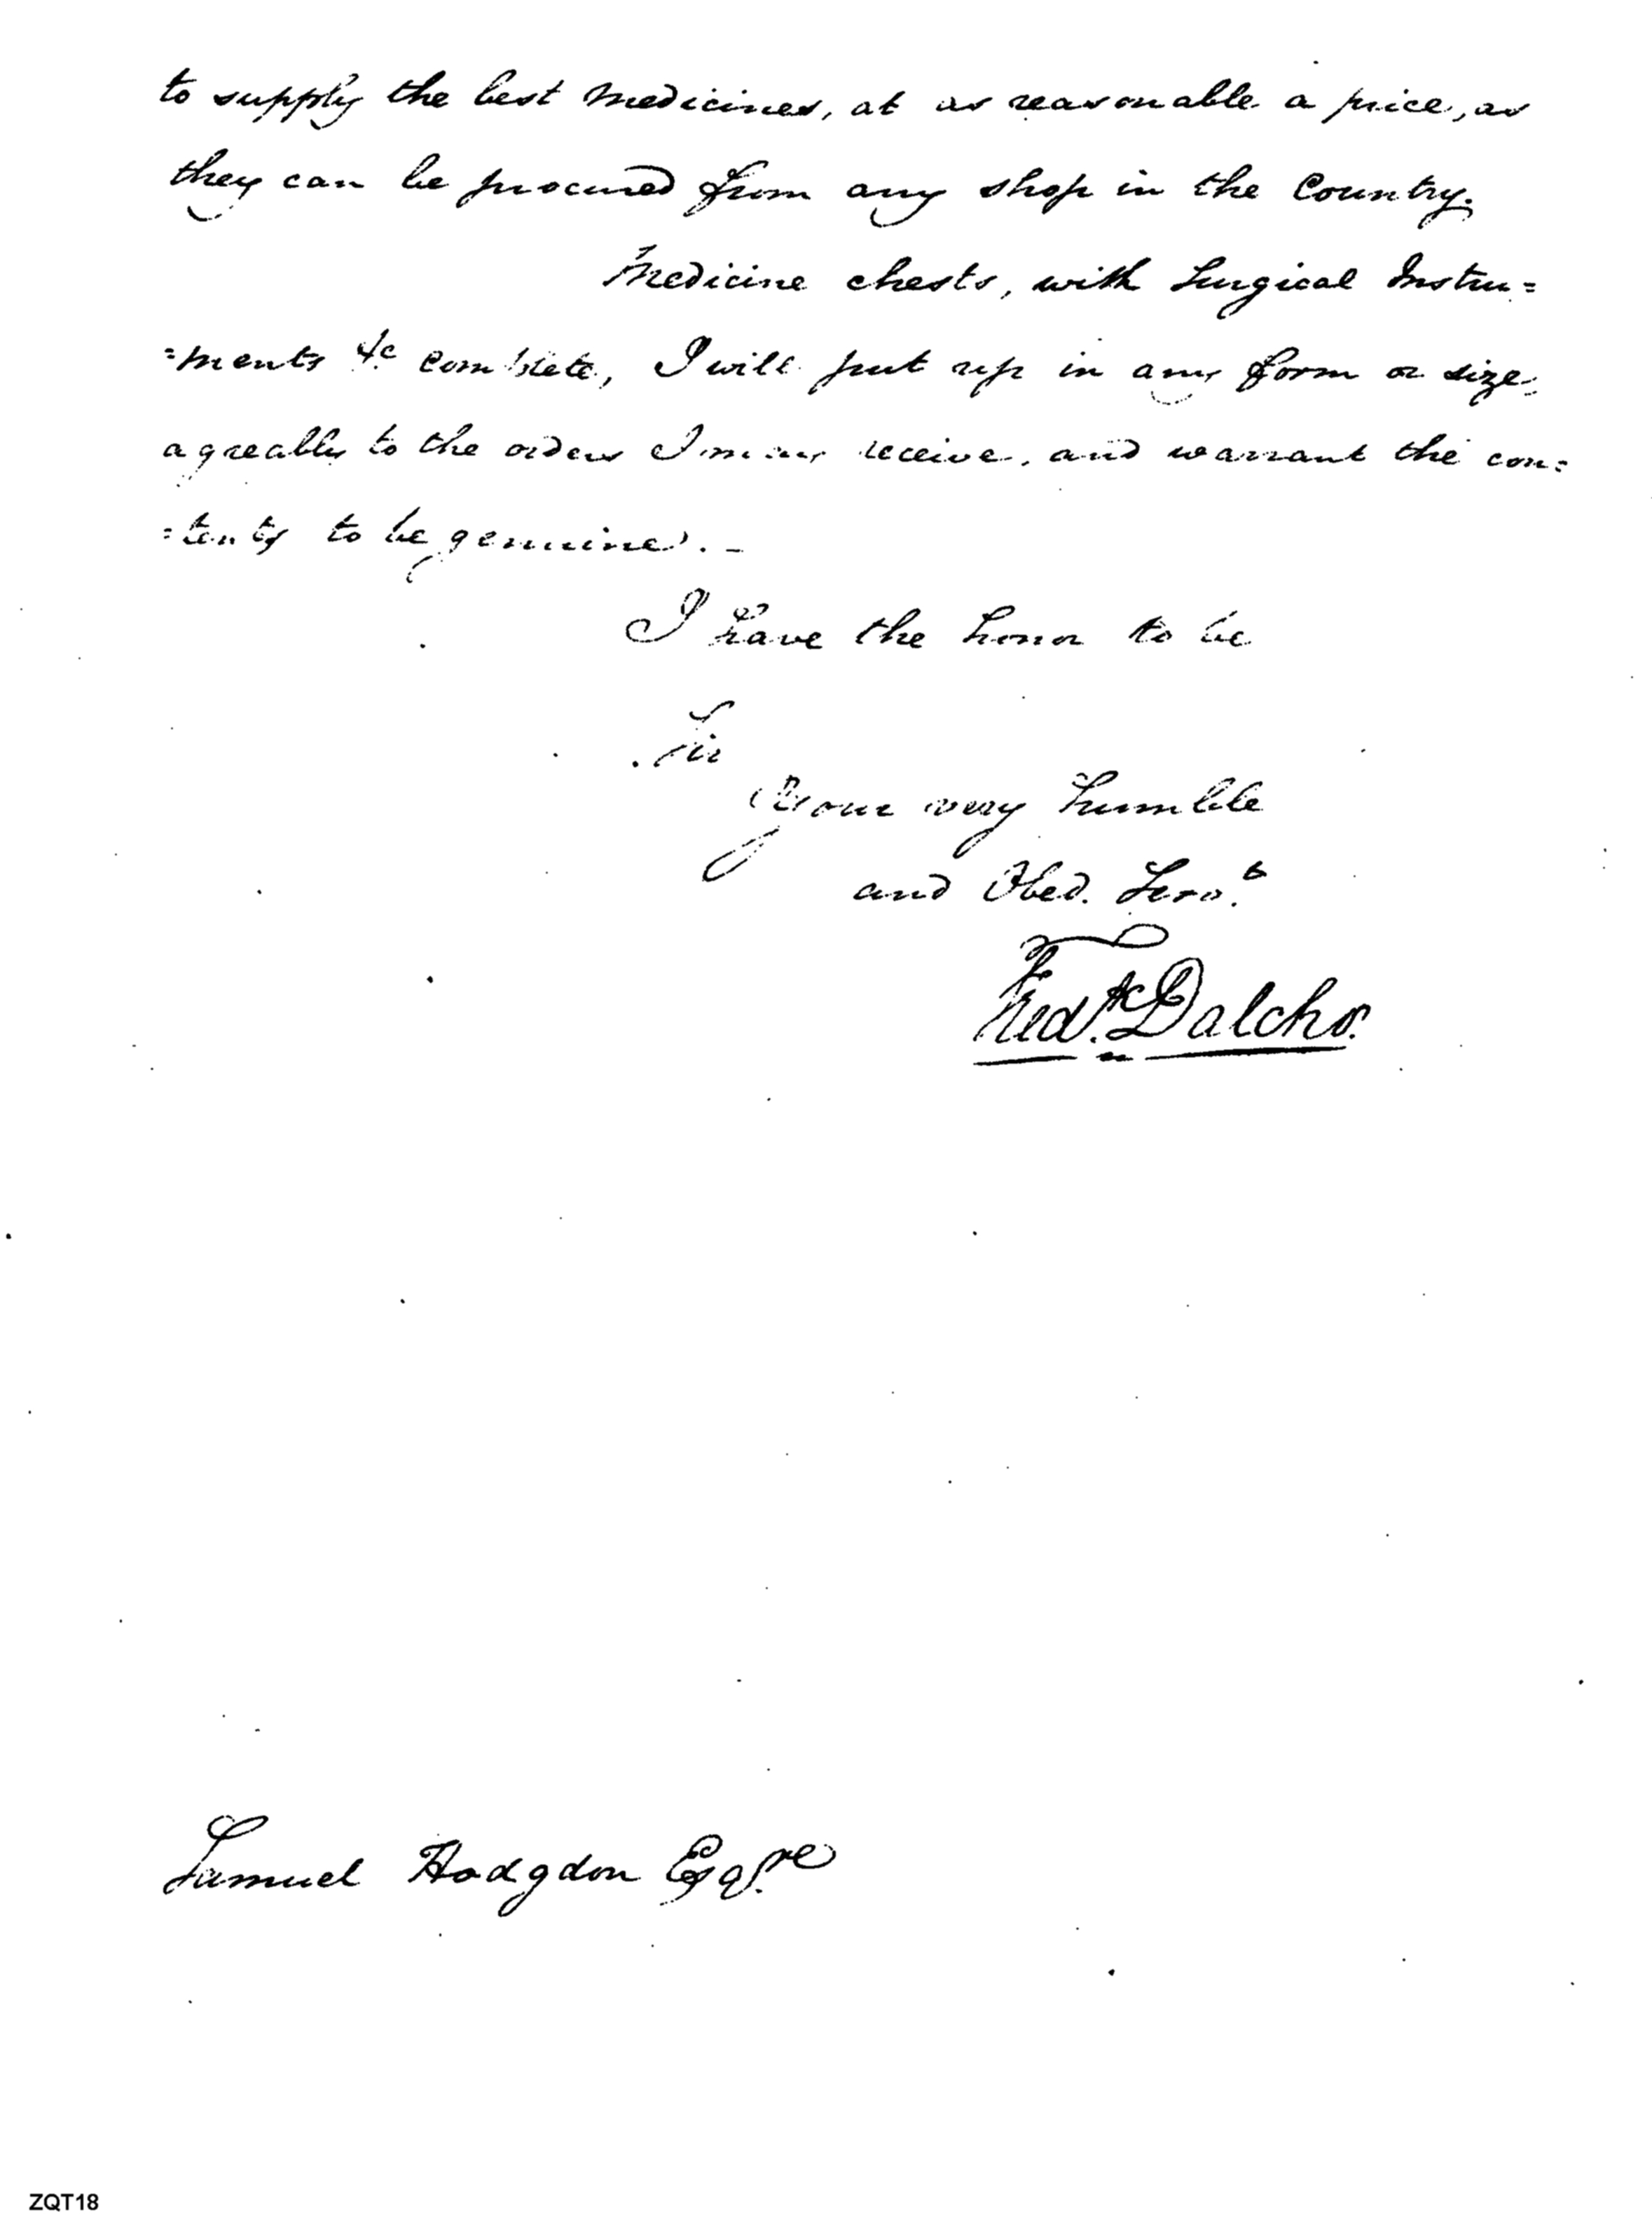 to supply the best medicines, at as reasonable a price, as
they can be procured from any shop in the Country.
Medicine chests, with Surgical Instru=
=ments &c complete, I will put up in any form or size,
agreably to the orders I may receive, and warrant the con=
=tents to be genuine. -
I have the honor to be
Sir
Your very humble
and Obed. Servt
Fredk. Dalcho.
Samuel Hodgdon Esqre
ZQT18